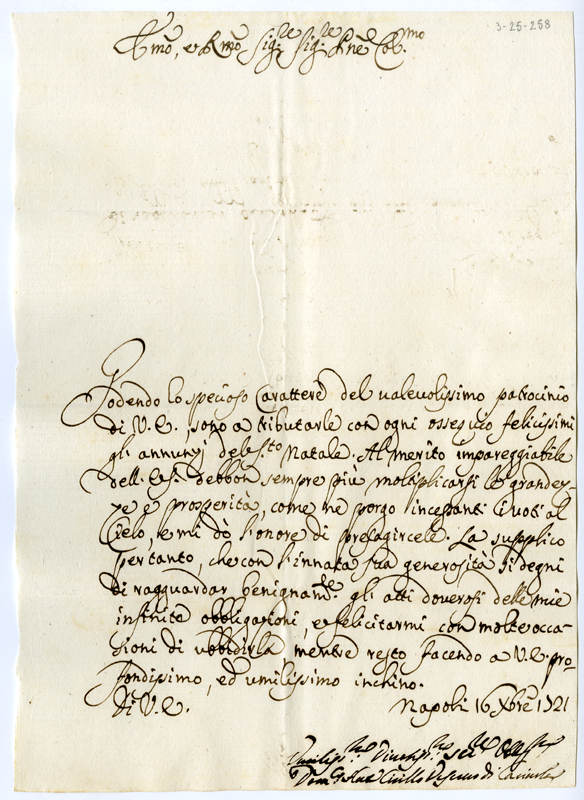 3-25-258
Em̃o, e Rm̃o Sig.re Sig.re Pñe Col.mo
Godendo lo specioso Carattere del valevolissimo patrocinio
di V.E., sono a tributarle con ogni ossequio felicissimi
gli annunzj del S.to Natale. Al merito impareggiabile
dell'E.S. debbon sempre più moltiplicarsi le grandez-
ze e prosperità, come ne porgo incessanti i voti al
Cielo, e mi dò l'onore di presagircele. La supplico
pertanto, che con l'innata sua generosità si degni
di ragguardar benignam.te gli atti doverosi delle mie
infinite obbligazioni, e felicitarmi con molte occa-
sioni di ubbidirla mentre resto facendo a V.E. pro-
fondissimo, ed umilissimo inchino.
Di V.E.
Napoli 16 Xbre 1721
Umiliss.mo Divotiss.mo Ser.re Obb.mo
Dom.co Ant. Cirillo Vescovo di